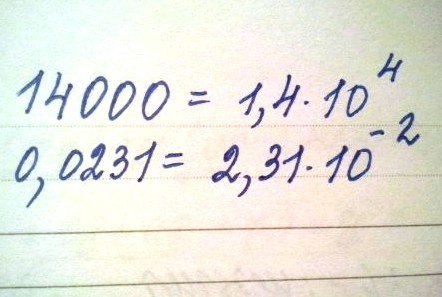 14000 = 1,4·10⁴
0,0231 = 2,31·10⁻²